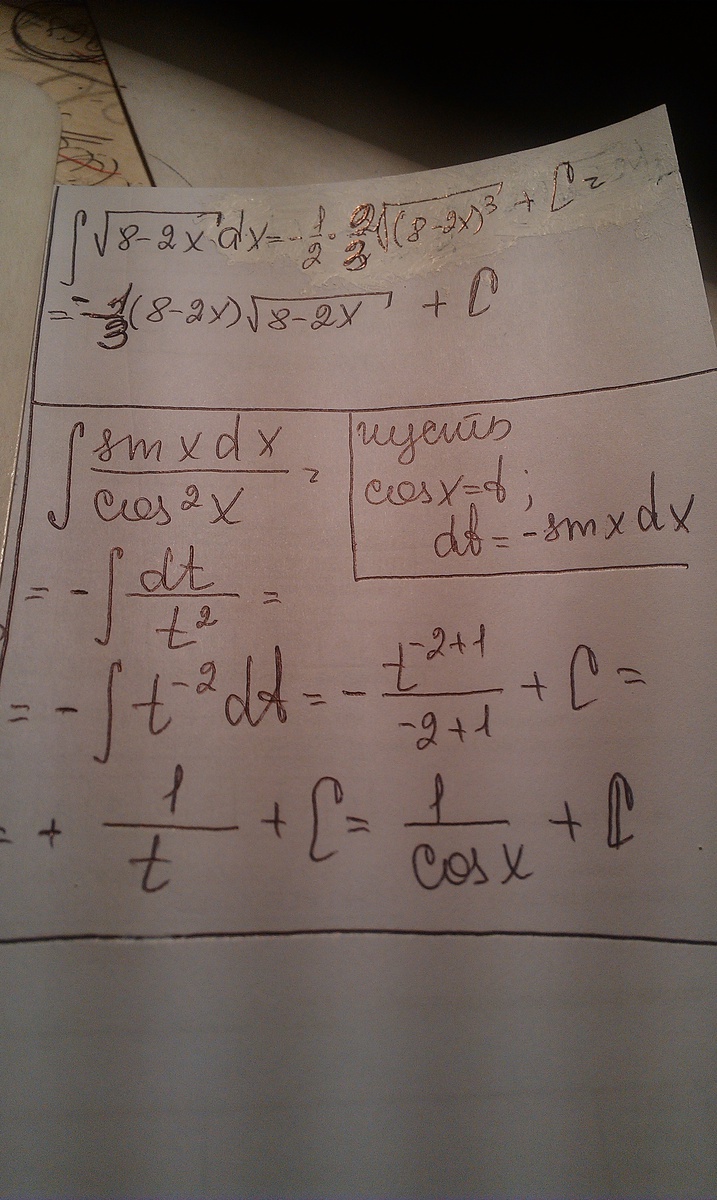 ∫ √(8-2x) dx = -1/2 · 2/3 √((8-2x)³) + C =
= -1/3 (8-2x) √(8-2x) + C
∫ (sin x dx)/(cos²x) =
пусть
cos x = t;
dt = -sin x dx
= -∫ dt/t² =
= -∫ t⁻² dt = - (t⁻²⁺¹)/(-2+1) + C =
= + 1/t + C = 1/(cos x) + C